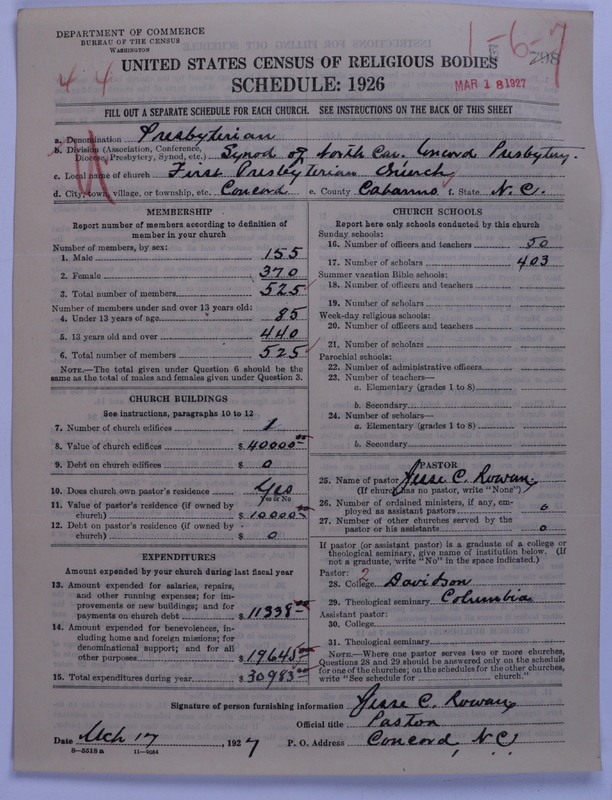 DEPARTMENT OF COMMERCE
BUREAU OF THE CENSUS
WASHINGTON
1-6-7
298
4 4
UNITED STATES CENSUS OF RELIGIOUS BODIES
SCHEDULE: 1926
MAR 18 1927
FILL OUT A SEPARATE SCHEDULE FOR EACH CHURCH. SEE INSTRUCTIONS ON THE BACK OF THIS SHEET
a. Denomination Presbyterian
b. Division (Association, Conference, Diocese, Presbytery, Synod, etc.) Synod of North Car. Concord Presbytery.
c. Local name of church First Presbyterian Church
d. City, town, village, or township, etc. Concord e. County Cabarrus f. State N.C.
MEMBERSHIP
Report number of members according to definition of
member in your church
Number of members, by sex:
1. Male 155
2. Female 370
3. Total number of members 525
Number of members under and over 13 years old:
4. Under 13 years of age 85
5. 13 years old and over 440
6. Total number of members 525
NOTE.—The total given under Question 6 should be
same as the total of males and females given under Question 3.
CHURCH BUILDINGS
See instructions, paragraphs 10 to 12
7. Number of church edifices 1
8. Value of church edifices $ 40000.00
9. Debt on church edifices $ 0
10. Does church own pastor's residence Yes
Yes or No
11. Value of pastor's residence (if owned by
church) $ 10000.00
12. Debt on pastor's residence (if owned by
church) $ 0
EXPENDITURES
Amount expended by your church during last fiscal year
13. Amount expended for salaries, repairs,
and other running expenses; for im-
provements or new buildings; and for
payments on church debt $ 11338.00
14. Amount expended for benevolences, in-
cluding home and foreign missions; for
denominational support; and for all
other purposes $ 19645.00
15. Total expenditures during year $ 30983.00
CHURCH SCHOOLS
Report here only schools conducted by this church
Sunday schools:
16. Number of officers and teachers 50
17. Number of scholars 403
Summer vacation Bible schools:
18. Number of officers and teachers
19. Number of scholars
Week-day religious schools:
20. Number of officers and teachers
21. Number of scholars
Parochial schools:
22. Number of administrative officers
23. Number of teachers—
a. Elementary (grades 1 to 8)
b. Secondary
24. Number of scholars—
a. Elementary (grades 1 to 8)
b. Secondary
PASTOR
25. Name of pastor Jesse C. Rowan
(If church has no pastor, write "None")
26. Number of ordained ministers, if any, em-
ployed as assistant pastors 0
27. Number of other churches served by the
pastor or his assistants 0
If pastor (or assistant pastor) is a graduate of a college or
theological seminary, give name of institution below. (If
not a graduate, write "No" in the space indicated.)
Pastor: 2
28. College Davidson
29. Theological seminary Columbia
Assistant pastor:
30. College
31. Theological seminary
NOTE.—Where one pastor serves two or more churches,
Questions 28 and 29 should be answered only on the schedule
for one of the churches; on the schedules for the other churches,
write "See schedule for church."
Signature of person furnishing information Jesse C. Rowan
Official title Pastor
Date Mch 17, 1927 P. O. Address Concord, N.C.
8—5518 a 11—9084